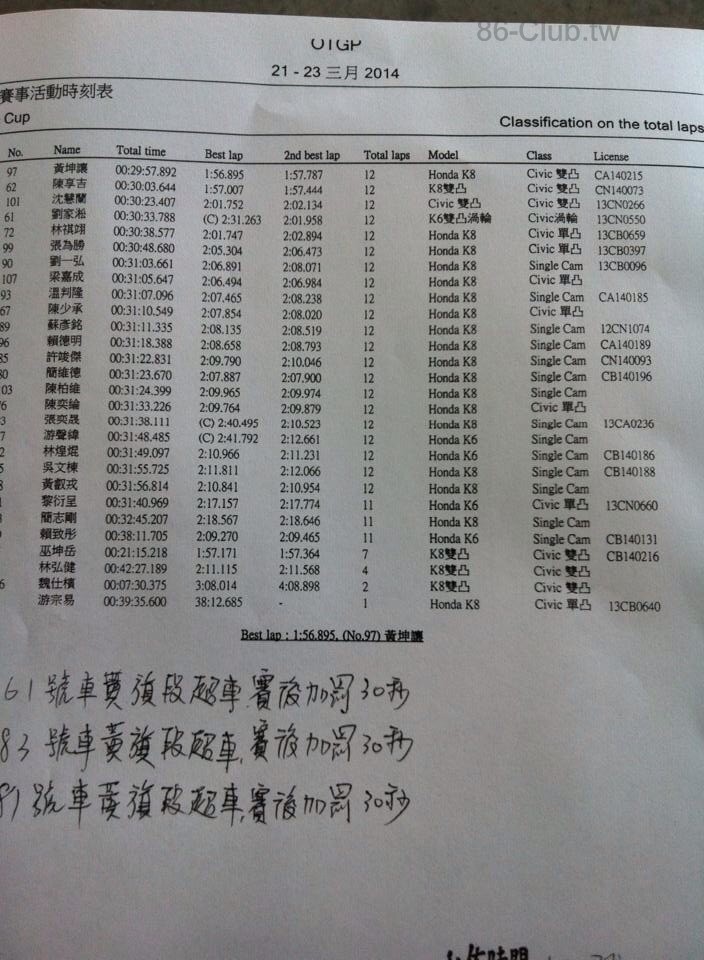 86-Club.tw
OTGP
21 - 23 三月 2014
賽事活動時刻表
Cup
Classification on the total laps
No. Name Total time Best lap 2nd best lap Total laps Model Class License
97 黃坤讓 00:29:57.892 1:56.895 1:57.787 12 Honda K8 Civic 雙凸 CA140215
62 陳享吉 00:30:03.644 1:57.007 1:57.444 12 K8雙凸 Civic 雙凸 CN140073
101 沈慧蘭 00:30:23.407 2:01.752 2:02.134 12 Civic 雙凸 Civic 雙凸 13CN0266
61 劉家淞 00:30:33.788 (C) 2:31.263 2:01.958 12 K6雙凸渦輪 Civic渦輪 13CN0550
72 林祺翊 00:30:38.577 2:01.747 2:02.894 12 Honda K8 Civic 單凸 13CB0659
99 張為勝 00:30:48.680 2:05.304 2:06.473 12 Honda K8 Civic 單凸 13CB0397
90 劉一弘 00:31:03.661 2:06.891 2:08.071 12 Honda K8 Single Cam 13CB0096
107 梁嘉成 00:31:05.647 2:06.494 2:06.984 12 Honda K8 Civic 單凸
93 溫判隆 00:31:07.096 2:07.465 2:08.238 12 Honda K8 Single Cam CA140185
67 陳少承 00:31:10.549 2:07.854 2:08.020 12 Honda K8 Civic 單凸
89 蘇彥銘 00:31:11.335 2:08.135 2:08.519 12 Honda K8 Single Cam 12CN1074
96 賴德明 00:31:18.388 2:08.658 2:08.793 12 Honda K8 Single Cam CA140189
85 許竣傑 00:31:22.831 2:09.790 2:10.046 12 Honda K8 Single Cam CN140093
80 簡維德 00:31:23.670 2:07.887 2:07.900 12 Honda K8 Single Cam CB140196
03 陳柏維 00:31:24.399 2:09.965 2:09.974 12 Honda K8 Single Cam
6 陳奕綸 00:31:33.226 2:09.764 2:09.879 12 Honda K8 Civic 單凸
3 張奕晟 00:31:38.111 (C) 2:40.495 2:10.523 12 Honda K8 Single Cam 13CA0236
7 游聲緯 00:31:48.485 (C) 2:41.792 2:12.661 12 Honda K6 Single Cam
2 林煌焜 00:31:49.097 2:10.966 2:11.231 12 Honda K6 Single Cam CB140186
5 吳文棟 00:31:55.725 2:11.811 2:12.066 12 Honda K8 Single Cam CB140188
8 黃叡戎 00:31:56.814 2:10.841 2:10.954 12 Honda K8 Single Cam
黎衍呈 00:31:40.969 2:17.157 2:17.774 11 Honda K6 Civic 單凸 13CN0660
簡志剛 00:32:45.207 2:18.567 2:18.646 11 Honda K8 Single Cam
賴致彤 00:38:11.705 2:09.270 2:09.465 11 Honda K6 Single Cam CB140131
巫坤岳 00:21:15.218 1:57.171 1:57.364 7 K8雙凸 Civic 雙凸 CB140216
林弘健 00:42:27.189 2:11.115 2:11.568 4 K8雙凸 Civic 雙凸
6 魏仕檳 00:07:30.375 3:08.014 4:08.898 2 K8雙凸 Civic 雙凸
游宗易 00:39:35.600 38:12.685 - 1 Honda K8 Civic 單凸 13CB0640
Best lap : 1:56.895, (No.97) 黃坤讓
61號車黃旗段超車,賽後加罰30秒
83號車黃旗段超車,賽後加罰30秒
87號車黃旗段超車,賽後加罰30秒